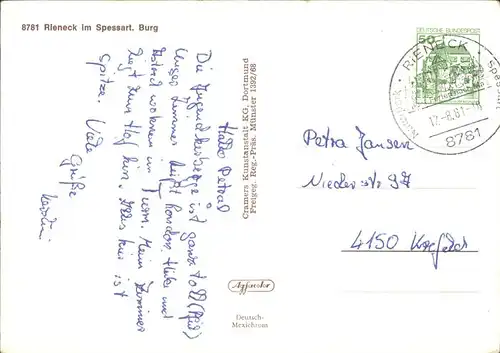 8781 Rieneck im Spessart. Burg
Hallo Petra!
Die Jugendherberge ist ganz toll (Pfad)
Unser Zimmer heißt London. Heike und
Astrid wohnen im Turm. Mein Zimmer
liegt zum Hof hin. Alles hier ist
Spitze. Viele
Grüße
Cramers Kunstanstalt KG, Dortmund
Freigeg. Reg.-Präs. Münster 1392/68
Agfacolor
Deutsch-
Mexichrom
DEUTSCHE BUNDESPOST
50
RIENECK
8781
Petra Jansen
Niederstr 97
4150 Krefeld